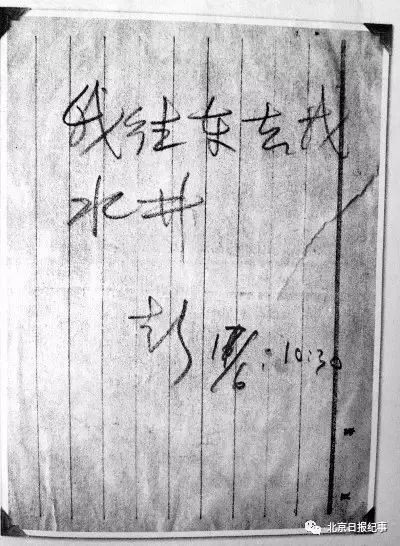 我往东去找
水井
彭 17/6: 10:30
北京日报纪事